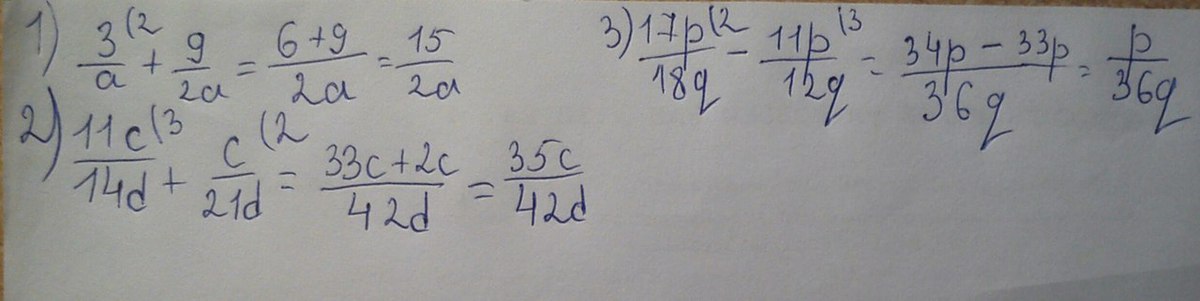 1) 3(2/a + 9/2a = 6+9/2a = 15/2a
2) 11c(3/14d + c(2/21d = 33c+2c/42d = 35c/42d
3) 17p(2/18q - 11p(3/12q = 34p-33p/36q = p/36q